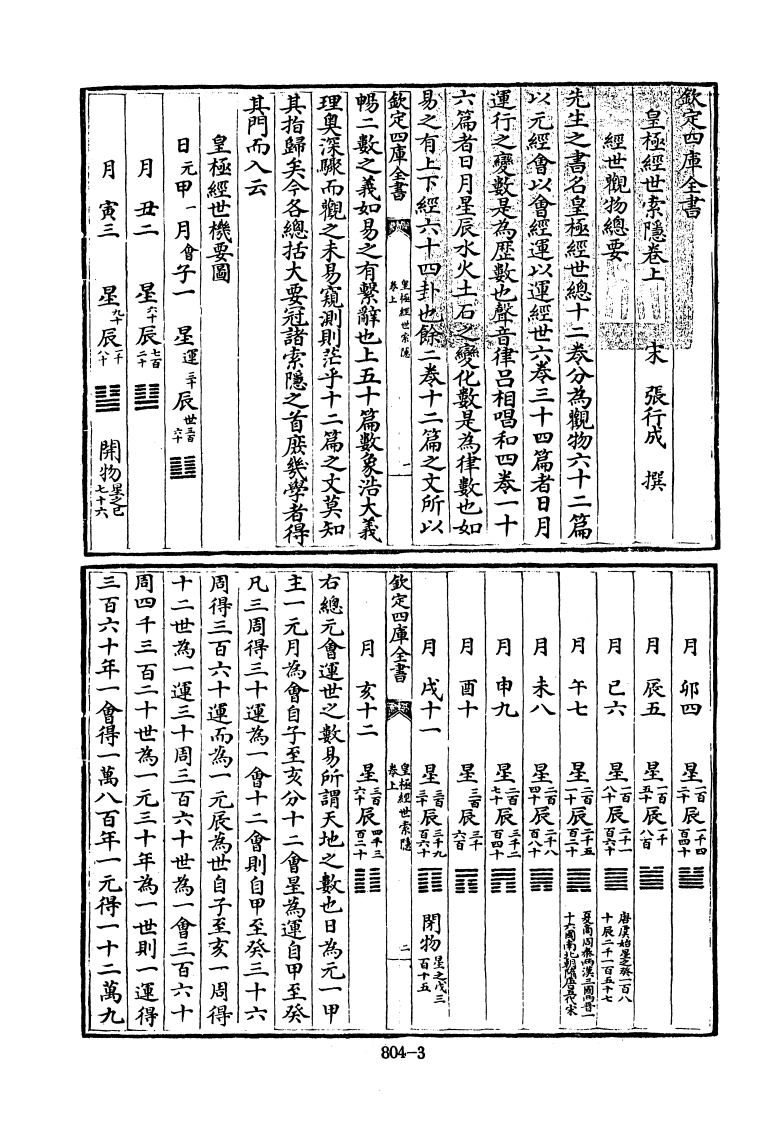 欽定四庫全書
皇極經世索隱卷上
宋 張行成 撰
經世觀物總要
先生之書名皇極經世總十二卷分為觀物六十二篇
以元經會以會經運以運經世六卷三十四篇者日月
運行之變數是為歷數也聲音律呂相唱和四卷一十
六篇者日月星辰水火土石之變化數是為律數也如
易之有上下經六十四卦也餘二卷十二篇之文所以
欽定四庫全書
皇極經世索隱
卷上
一
暢二數之義如易之有繫辭也上五十篇數象浩大義
理奧深驟而觀之未易窺測則茫乎十二篇之文莫知
其指歸矣今各總括大要冠諸索隱之首庶幾學者得
其門而入云
皇極經世機要圖
日元甲一月會子一 星運三十辰世三百六十 ䷗
月 丑二 星六十辰七百二十 ䷒
月 寅三 星九十辰一千八十 ䷊ 開物星之已七十六
月 卯四 星一百二十辰一千四百四十 ䷡
月 辰五 星一百五十辰一千八百 ䷪
月 巳六 星一百八十辰二千一百六十 ䷀ 唐虞始星之癸一百八十辰二千一百五十七
月 午七 星二百一十辰二千五百二十 ䷫ 夏商周秦兩漢三國兩晉十六國南北朝隋唐五代宋
月 未八 星二百四十辰二千八百八十 ䷠
月 申九 星二百七十辰三千二百四十 ䷋
月 酉十 星三百辰三千六百 ䷓
月 戌十一 星三百三十辰三千九百六十 ䷖ 閉物星之戊三百十五
欽定四庫全書
皇極經世索隱
卷上
二
月 亥十二 星三百六十辰四千三百二十 ䷁
右總元會運世之數易所謂天地之數也日為元一甲
主一元月為會自子至亥分十二會星為運自甲至癸
凡三周得三十運為一會十二會則自甲至癸三十六
周得三百六十運而為一元辰為世自子至亥一周得
十二世為一運三十周三百六十世為一會三百六十
周四千三百二十世為一元三十年為一世則一運得
三百六十年一會得一萬八百年一元得一十二萬九
804-3